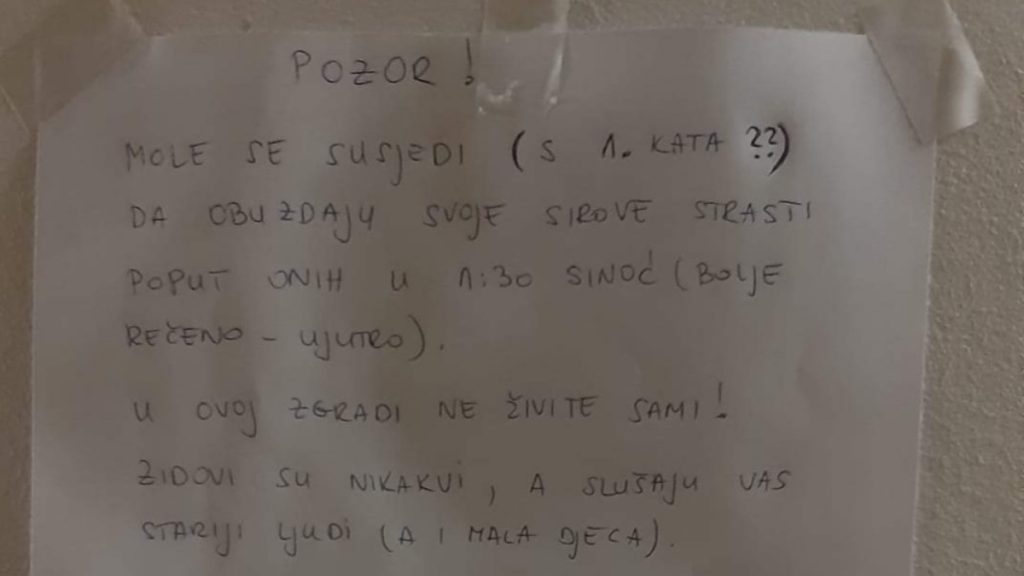 POZOR!
MOLE SE SUSJEDI (S 1. KATA ??)
DA OBUZDAJU SVOJE SIROVE STRASTI
POPUT ONIH U 1:30 SINOĆ (BOLJE
REČENO - UJUTRO).
U OVOJ ZGRADI NE ŽIVITE SAMI!
ZIDOVI SU NIKAKVI, A SLUŠAJU VAS
STARIJI LJUDI (A I MALA DJECA).